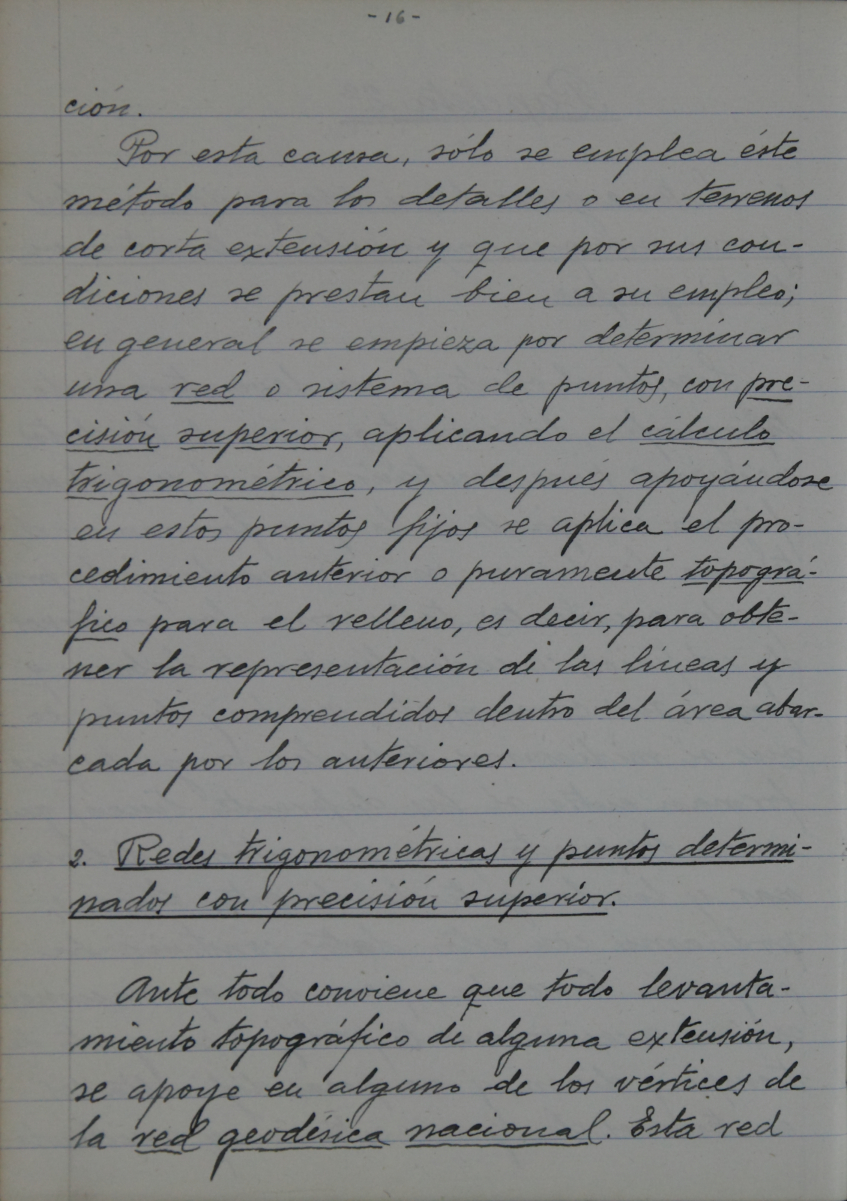 -16-
ción.
Por esta causa, sólo se emplea éste
método para los detalles o en terrenos
de corta extensión y que por sus con-
diciones se prestan bien a su empleo;
en general se empieza por determinar
una red o sistema de puntos, con pre-
cisión superior, aplicando el cálculo
trigonométrico, y después apoyándose
en estos puntos fijos se aplica el pro-
cedimiento anterior o puramente topográ-
fico para el relleno, es decir, para obte-
ner la representación de las líneas y
puntos comprendidos dentro del área abar-
cada por los anteriores.
2. Redes trigonométricas y puntos determi-
nados con precisión superior.
Ante todo conviene que todo levanta-
miento topográfico de alguna extensión,
se apoye en alguno de los vértices de
la red geodésica nacional. Esta red